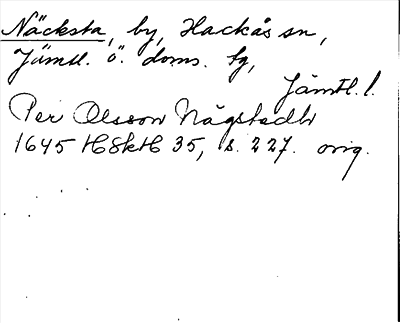 Näcksta, by, Hackås sn,
Jämtl. ö. doms. tg,
Jämtl. l.
Per Olsson Någstadh
1645 HSkH 35, s. 227. orig.